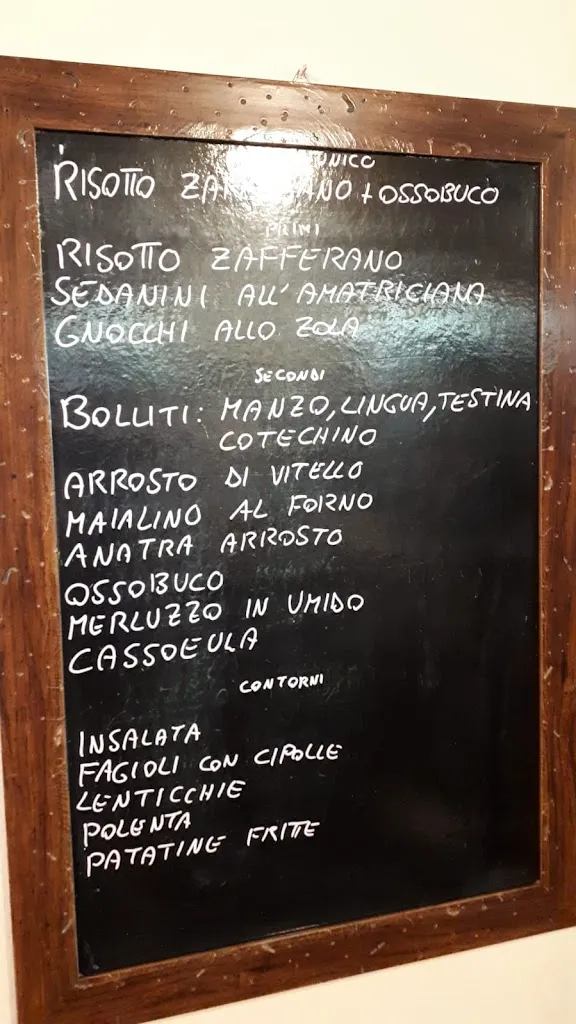 UNICO
RISOTTO ZAFFERANO + OSSOBUCO
PRIMI
RISOTTO ZAFFERANO
SEDANINI ALL'AMATRICIANA
GNOCCHI ALLO ZOLA
SECONDI
BOLLITI: MANZO, LINGUA, TESTINA
COTECHINO
ARROSTO DI VITELLO
MAIALINO AL FORNO
ANATRA ARROSTO
OSSOBUCO
MERLUZZO IN UMIDO
CASSOEULA
CONTORNI
INSALATA
FAGIOLI CON CIPOLLE
LENTICCHIE
POLENTA
PATATINE FRITTE